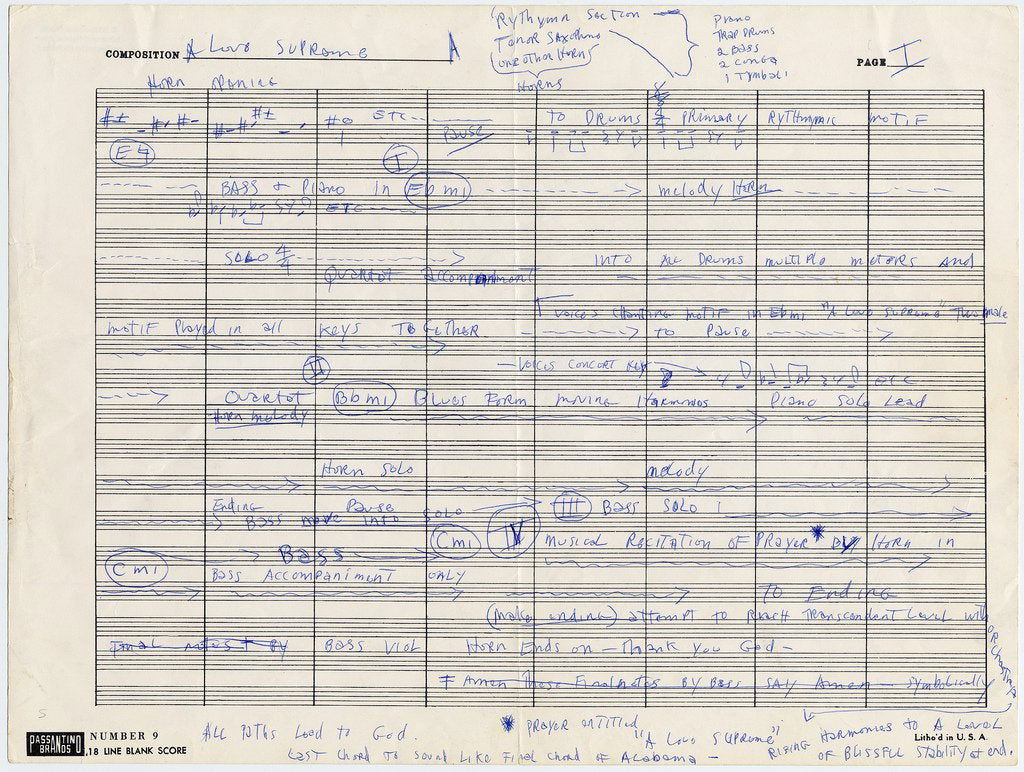 "Rythymn Section
Tenor Saxophone
(one other Horn)
Piano
TRAP DRUMS
2 BASS
2 CONGA
1 TYMBALI
COMPOSITION A Love Supreme
A
PAGE I
HORN OPENING
Horns
ETC
PAUSE
TO DRUMS 4/4 PRIMARY RYTHMMIC MOTIF
E♮
I
BASS + PIANO IN Eb mi
melody Horn
ETC
SOLO 4/4
INTO ALL DRUMS MULTIPLE METERS AND
Quartet Accompaniment
VOICES CHANTING MOTIF IN Ebmi "A Love Supreme" Two male
MOTIF Played in all KEYS TOGETHER
TO PAUSE
VOICES CONCERT KEY
ETC
II
QUARTET Bbmi BLUES FORM MOVING HARMONIES PIANO SOLO Lead
Horn melody
HORN SOLO
melody
Ending Pause
BASS move INTO SOLO
III BASS SOLO I
Cmi IV MUSICAL RECITATION OF PRAYER * BY HORN IN
BASS
Cmi BASS ACCOMPANIMENT ONLY
TO ENDING
(make ending) attempt to REACH TRANSCENDENT Level with
ORCHESTRA
Final notes + BY BASS VIOL
HORN ENDS ON – THANK YOU GOD –
Amen These Final notes BY BASS SAY Amen – SYMBOLICALLY
RISING HARMONIES TO A LEVEL
OF BLISSFUL STABILITY at end.
S
PASSANTINO
BRANDS
NUMBER 9
18 LINE BLANK SCORE
ALL PATHS Lead to God.
* PRAYER ENTITLED
"A Love SUPREME"
LAST CHORD TO SOUND LIKE FINAL CHORD OF ALABAMA –
Litho'd in U. S. A.